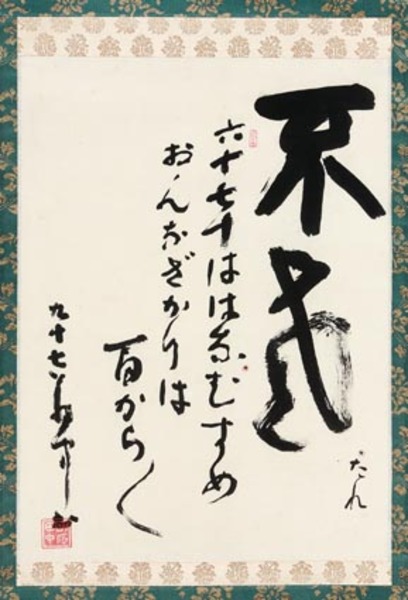 不老
だれ
六十七十ははなむすめ
おんなざかりは
百から〱
九十七